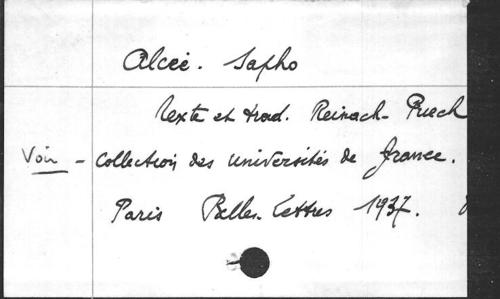 Alcée. Sapho
Texte et trad. Reinach - Puech
Voir - Collection des Universités de France.
Paris Belles-Lettres 1937.